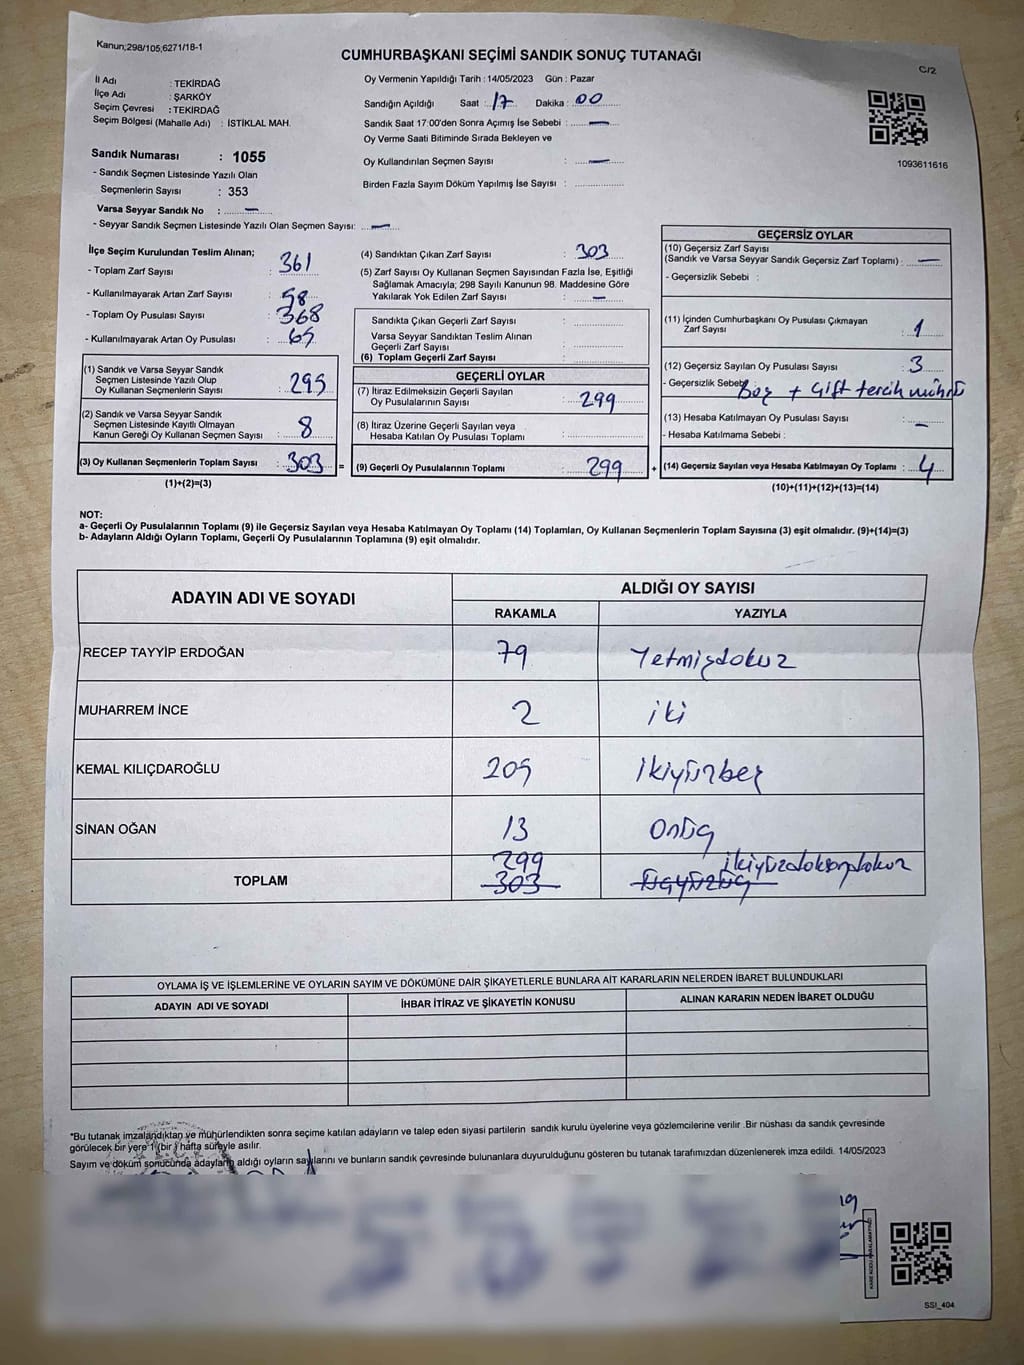 Kanun;298/105;6271/18-1
CUMHURBAŞKANI SEÇİMİ SANDIK SONUÇ TUTANAĞI
C/2
İl Adı : TEKİRDAĞ
İlçe Adı : ŞARKÖY
Seçim Çevresi : TEKİRDAĞ
Seçim Bölgesi (Mahalle Adı) : İSTİKLAL MAH.
Sandık Numarası : 1055
- Sandık Seçmen Listesinde Yazılı Olan
Seçmenlerin Sayısı : 353
Varsa Seyyar Sandık No : —
- Seyyar Sandık Seçmen Listesinde Yazılı Olan Seçmen Sayısı: —
Oy Vermenin Yapıldığı Tarih : 14/05/2023 Gün : Pazar
Sandığın Açıldığı Saat : 17 Dakika : 00
Sandık Saat 17:00'den Sonra Açımış İse Sebebi : —
Oy Verme Saati Bitiminde Sırada Bekleyen ve
Oy Kullandırılan Seçmen Sayısı : —
Birden Fazla Sayım Döküm Yapılmış İse Sayısı :
1093611616
İlçe Seçim Kurulundan Teslim Alınan;
- Toplam Zarf Sayısı : 361
- Kullanılmayarak Artan Zarf Sayısı : 58
- Toplam Oy Pusulası Sayısı : 368
- Kullanılmayarak Artan Oy Pusulası : 65
(1) Sandık ve Varsa Seyyar Sandık
Seçmen Listesinde Yazılı Olup
Oy Kullanan Seçmenlerin Sayısı : 295
(2) Sandık ve Varsa Seyyar Sandık
Seçmen Listesinde Kayıtlı Olmayan
Kanun Gereği Oy Kullanan Seçmen Sayısı : 8
(3) Oy Kullanan Seçmenlerin Toplam Sayısı : 303
(1)+(2)=(3)
(4) Sandıktan Çıkan Zarf Sayısı : 303
(5) Zarf Sayısı Oy Kullanan Seçmen Sayısından Fazla İse, Eşitliği
Sağlamak Amacıyla; 298 Sayılı Kanunun 98. Maddesine Göre
Yakılarak Yok Edilen Zarf Sayısı : —
Sandıkta Çıkan Geçerli Zarf Sayısı :
Varsa Seyyar Sandıktan Teslim Alınan
Geçerli Zarf Sayısı :
(6) Toplam Geçerli Zarf Sayısı :
GEÇERLİ OYLAR
(7) İtiraz Edilmeksizin Geçerli Sayılan
Oy Pusulalarının Sayısı : 299
(8) İtiraz Üzerine Geçerli Sayılan veya
Hesaba Katılan Oy Pusulası Toplamı :
= (9) Geçerli Oy Pusulalarının Toplamı : 299 +
GEÇERSİZ OYLAR
(10) Geçersiz Zarf Sayısı
(Sandık ve Varsa Seyyar Sandık Geçersiz Zarf Toplamı) : —
- Geçersizlik Sebebi :
(11) İçinden Cumhurbaşkanı Oy Pusulası Çıkmayan
Zarf Sayısı : 1
(12) Geçersiz Sayılan Oy Pusulası Sayısı : 3
- Geçersizlik Sebebi Boş + Çift tercih mührü
(13) Hesaba Katılmayan Oy Pusulası Sayısı : —
- Hesaba Katılmama Sebebi :
(14) Geçersiz Sayılan veya Hesaba Katılmayan Oy Toplamı : 4
(10)+(11)+(12)+(13)=(14)
NOT:
a- Geçerli Oy Pusulalarının Toplamı (9) ile Geçersiz Sayılan veya Hesaba Katılmayan Oy Toplamı (14) Toplamları, Oy Kullanan Seçmenlerin Toplam Sayısına (3) eşit olmalıdır. (9)+(14)=(3)
b- Adayların Aldığı Oyların Toplamı, Geçerli Oy Pusulalarının Toplamına (9) eşit olmalıdır.
ADAYIN ADI VE SOYADI
ALDIĞI OY SAYISI
RAKAMLA YAZIYLA
RECEP TAYYİP ERDOĞAN 79 Yetmişdokuz
MUHARREM İNCE 2 iki
KEMAL KILIÇDAROĞLU 205 ikiyüzbeş
SİNAN OĞAN 13 Onüç
299 ikiyüzdoksandokuz
TOPLAM 303 üçyüzüç
OYLAMA İŞ VE İŞLEMLERİNE VE OYLARIN SAYIM VE DÖKÜMÜNE DAİR ŞİKAYETLERLE BUNLARA AİT KARARLARIN NELERDEN İBARET BULUNDUKLARI
ADAYIN ADI VE SOYADI İHBAR İTİRAZ VE ŞİKAYETİN KONUSU ALINAN KARARIN NEDEN İBARET OLDUĞU
*Bu tutanak imzalandıktan ve mühürlendikten sonra seçime katılan adayların ve talep eden siyasi partilerin sandık kurulu üyelerine veya gözlemcilerine verilir .Bir nüshası da sandık çevresinde
görülecek bir yere 1 (bir ) hafta süreyle asılır.
Sayım ve döküm sonucunda adayların aldığı oyların sayılarını ve bunların sandık çevresinde bulunanlara duyurulduğunu gösteren bu tutanak tarafımızdan düzenlenerek imza edildi. 14/05/2023
SSI_404